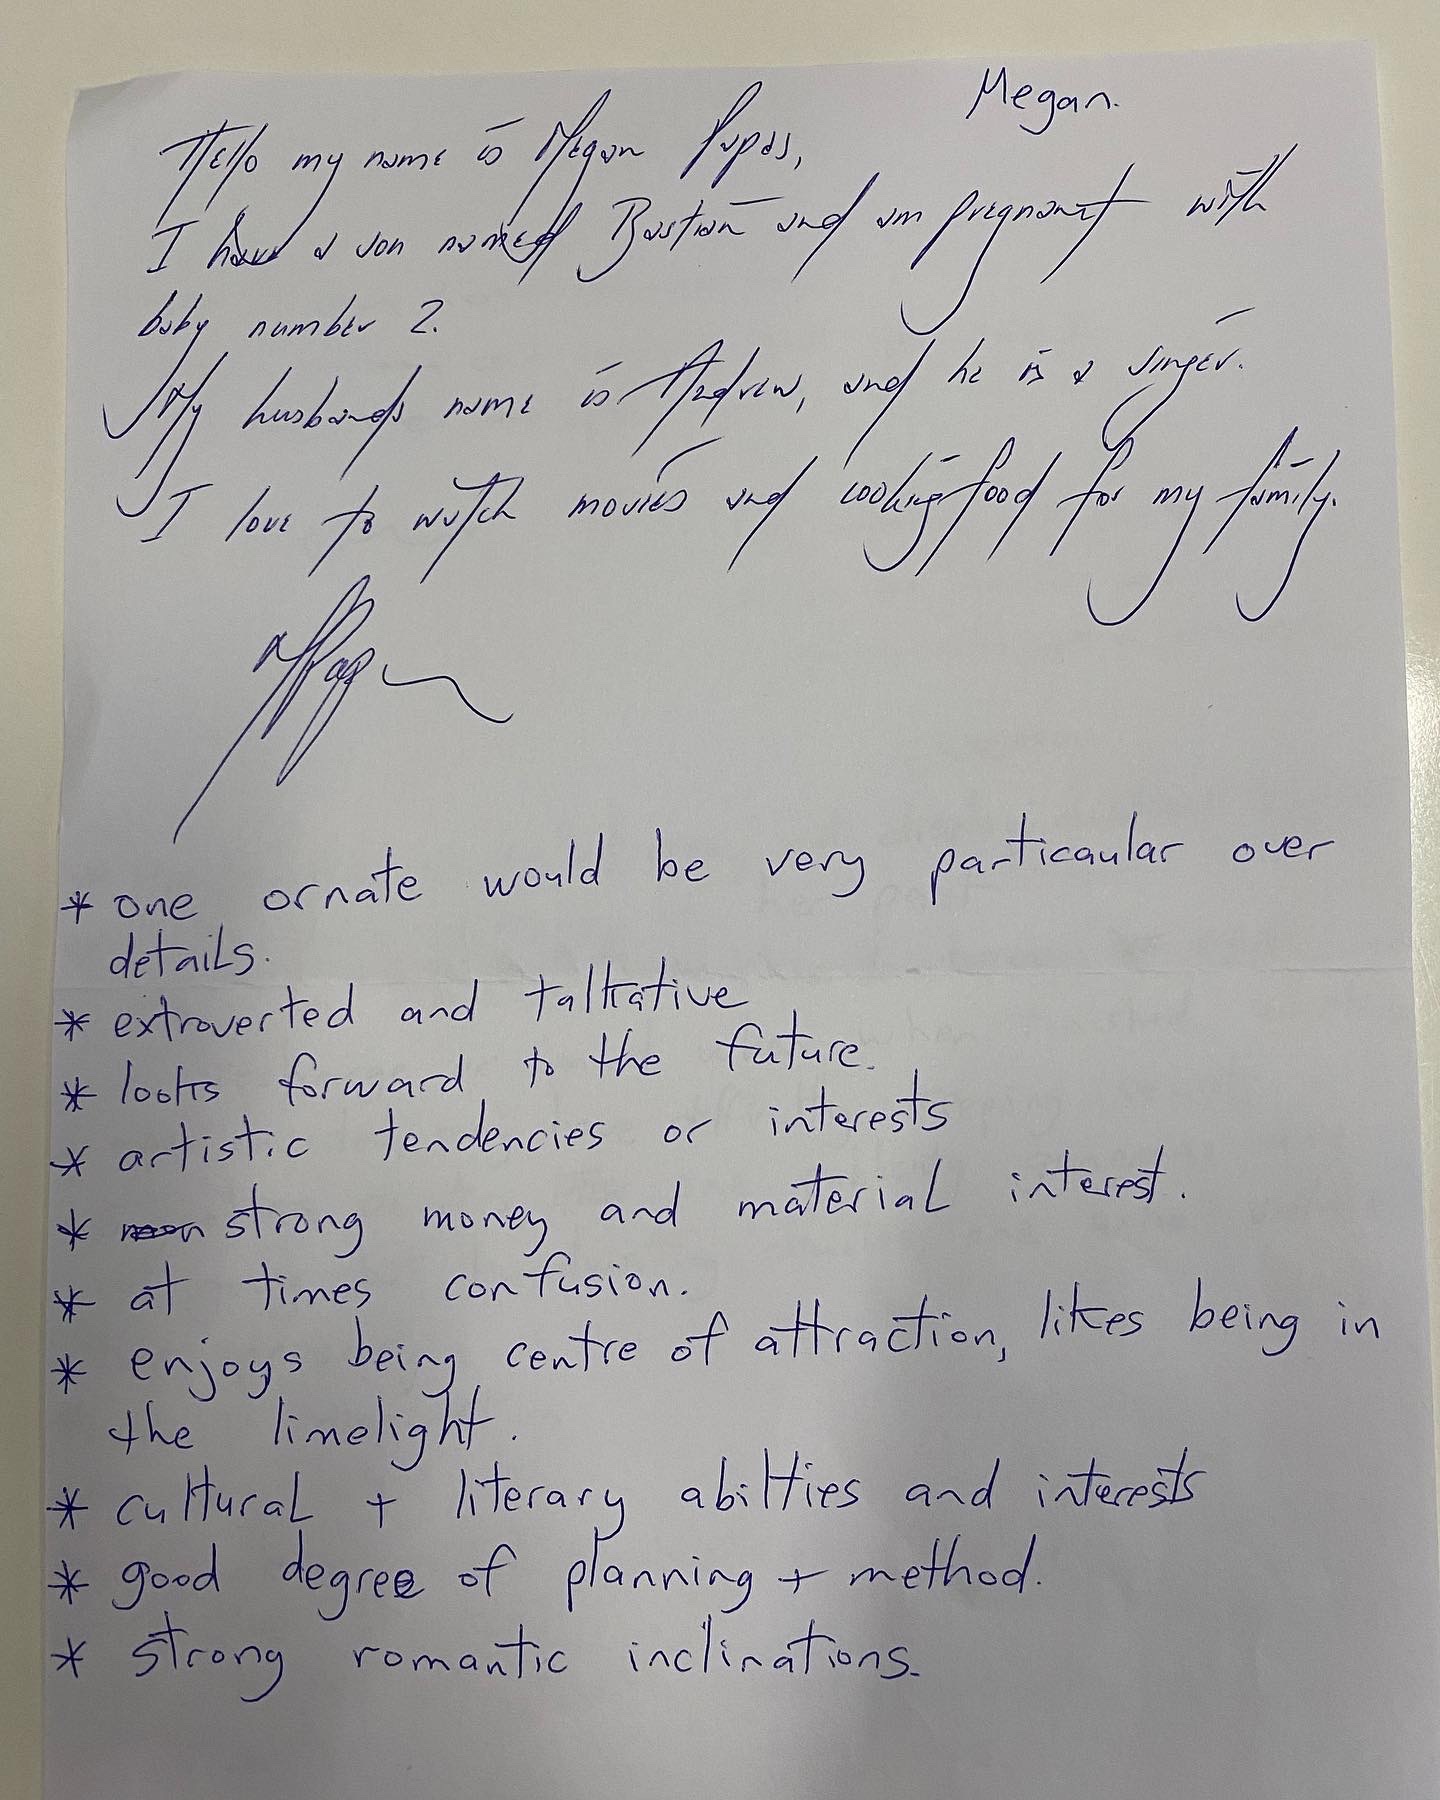 Megan.
Hello my name is Megan Papas,
I have a son named Bastian and am pregnant with
baby number 2.
My husbands name is Andrew, and he is a singer.
I love to watch movies and cooking food for my family.
* one ornate would be very particaular over
details.
* extroverted and talkative
* looks forward to the future.
* artistic tendencies or interests
* strong money and material interest.
* at times confusion.
* enjoys being centre of attraction, likes being in
the limelight.
* cultural + literary abilities and interests
* good degree of planning + method.
* strong romantic inclinations.